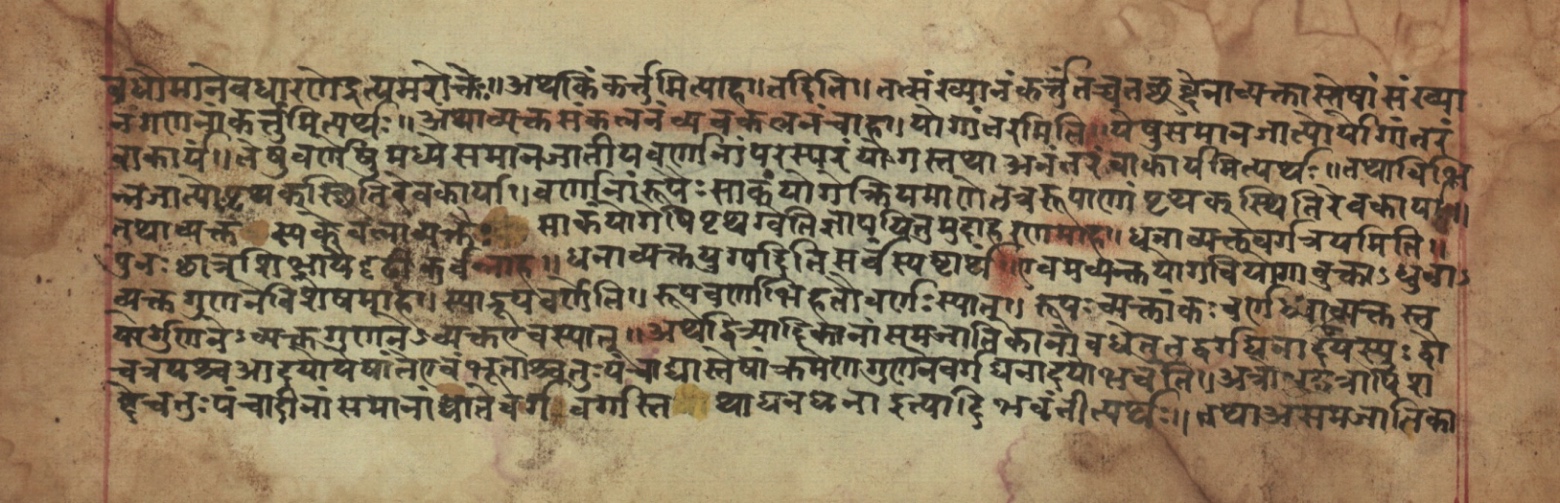 वधौमानेवधारणेइत्यमरोक्तेः॥अथकिंकर्त्तुमित्याह॥तदिति॥तत्संख्यानंकर्त्तुंतच्चतच्छब्देनाव्यक्तास्तेषांसंख्या
नंगणनांकर्त्तुमित्यर्थः॥अथाव्यक्तसंकलनंव्यवकलनंचाह॥योगोंतरमिति॥येषुसमानजात्योर्योगोंतरं
चकार्यं॥तेषुवर्णेषुमध्येसमानजातीयवर्णानांपरस्परंयोगस्तथाअनंतरंवाकार्यमित्यर्थः॥तथाविभि
न्नजात्योःपृथक्स्थितिरेवकार्या॥वर्णानांरूपैःसाकंयोगेक्रियमाणेतत्ररूपाणांपृथक्स्थितिरेवकार्या॥
तथाव्यक्त साकंयोगेपिपृथग्वेतिज्ञापयितुमुदाहरणमाह॥धनाव्यक्तवर्गत्रयमिति॥
पुनः धनाव्यक्तयुग्मादितिसर्वंस्पष्टार्थं॥एवमव्यक्तयोगवियोगावुक्त्वाऽधुनाऽ
व्यक्तगुणनेविशेषमाह॥स्याद्रूपवर्णेति॥रूपवर्णाभिहतौवर्णःस्यात्॥रूपः व्यक्तांकः
योर्गुणने व्यक्तगुणनेऽव्यक्तएवस्यात्॥अथद्वित्र्यादिकानांसमजातिकानांवधेतुतद्वर्गघनादयःस्युःद्वौ
चत्रयश्चआदयोयेषांतेएवंभूताश्चतुःपंचाद्यास्तेषांक्रमेणगुणनेवर्गघनादयोभवंति॥
चतुःपंचादीनांसमानांघातेवर्गवर्गस्ति थाघनघनाइत्यादिभवंतीत्यर्थः॥तथाअसमजातिका